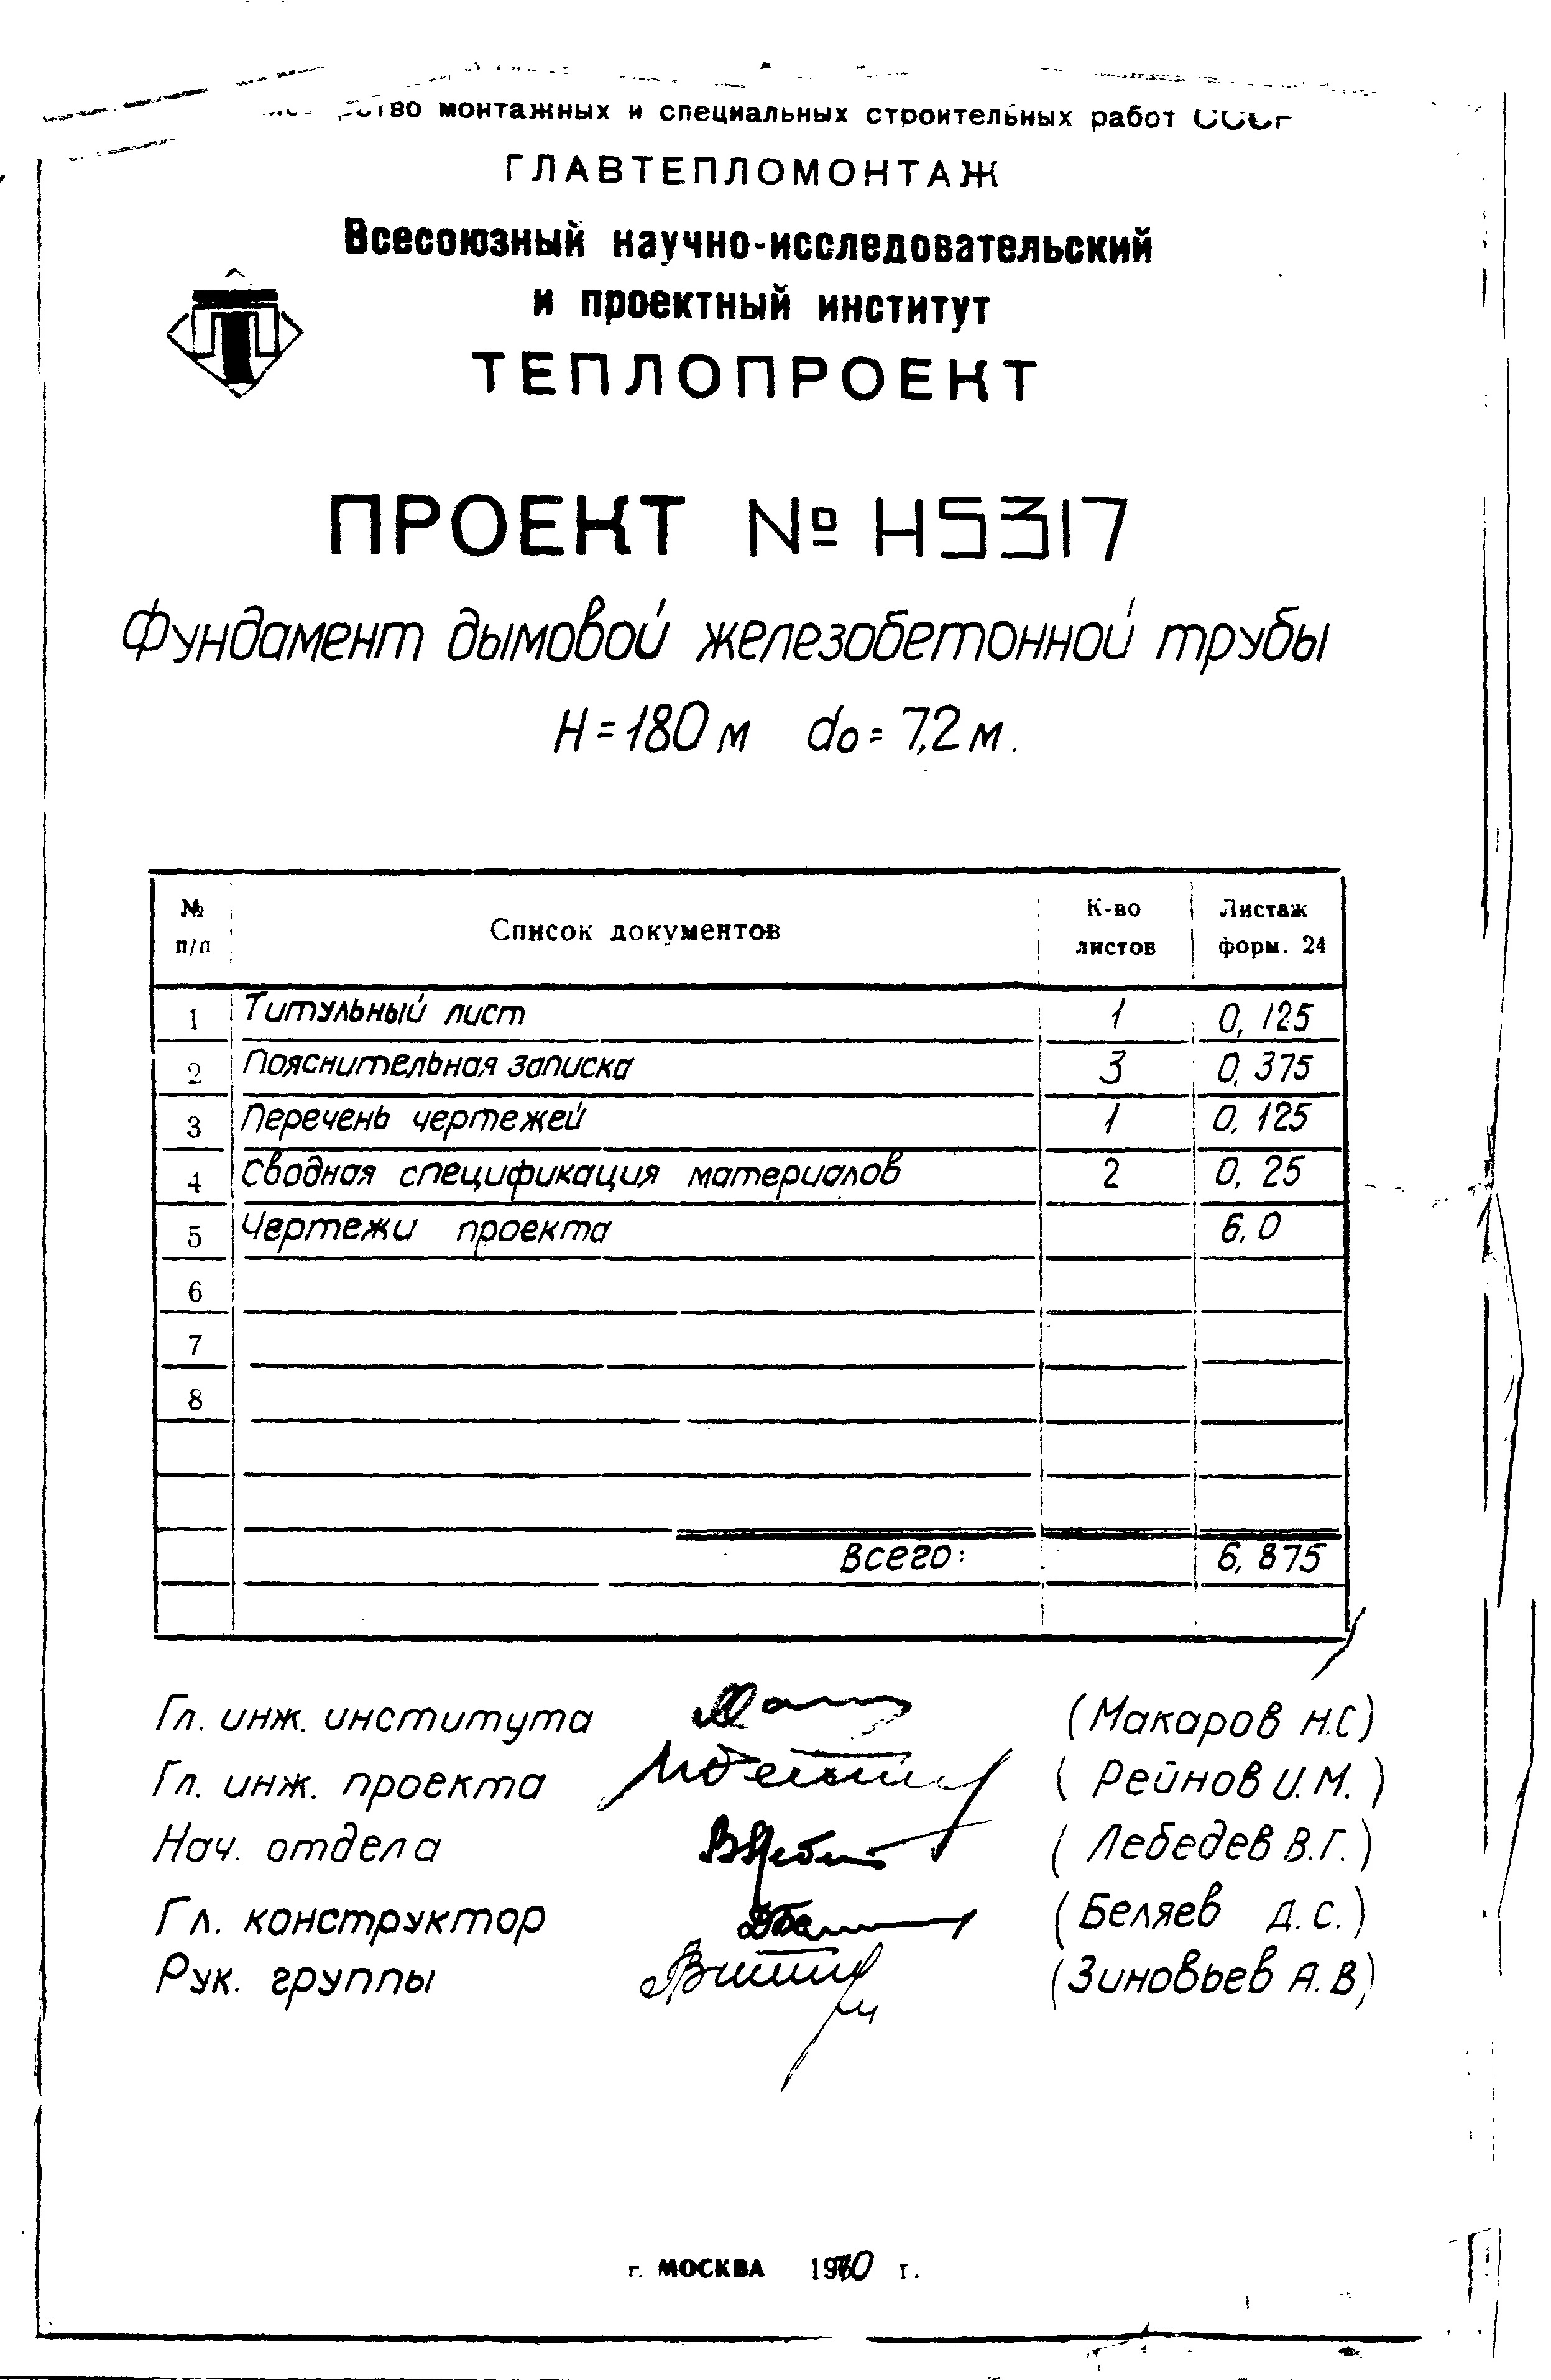 монтажных и специальных строительных работ СССР
ГЛАВТЕПЛОМОНТАЖ
Всесоюзный научно-исследовательский
и проектный институт
ТЕПЛОПРОЕКТ
ПРОЕКТ № Н5317
Фундамент дымовой железобетонной трубы
Н=180м do=7,2м.
№ п/п Список документов К-во листов Листаж форм. 24
1 Титульный лист 1 0,125
2 Пояснительная записка 3 0,375
3 Перечень чертежей 1 0,125
4 Сводная спецификация материалов 2 0,25
5 Чертежи проекта 6,0
6
7
8
Всего: 6,875
Гл. инж. института (Макаров Н.С)
Гл. инж. проекта (Рейнов И.М.)
Нач. отдела (Лебедев В.Г.)
Гл. конструктор (Беляев Д.С.)
Рук. группы (Зиновьев А.В)
г. МОСКВА 1970 г.